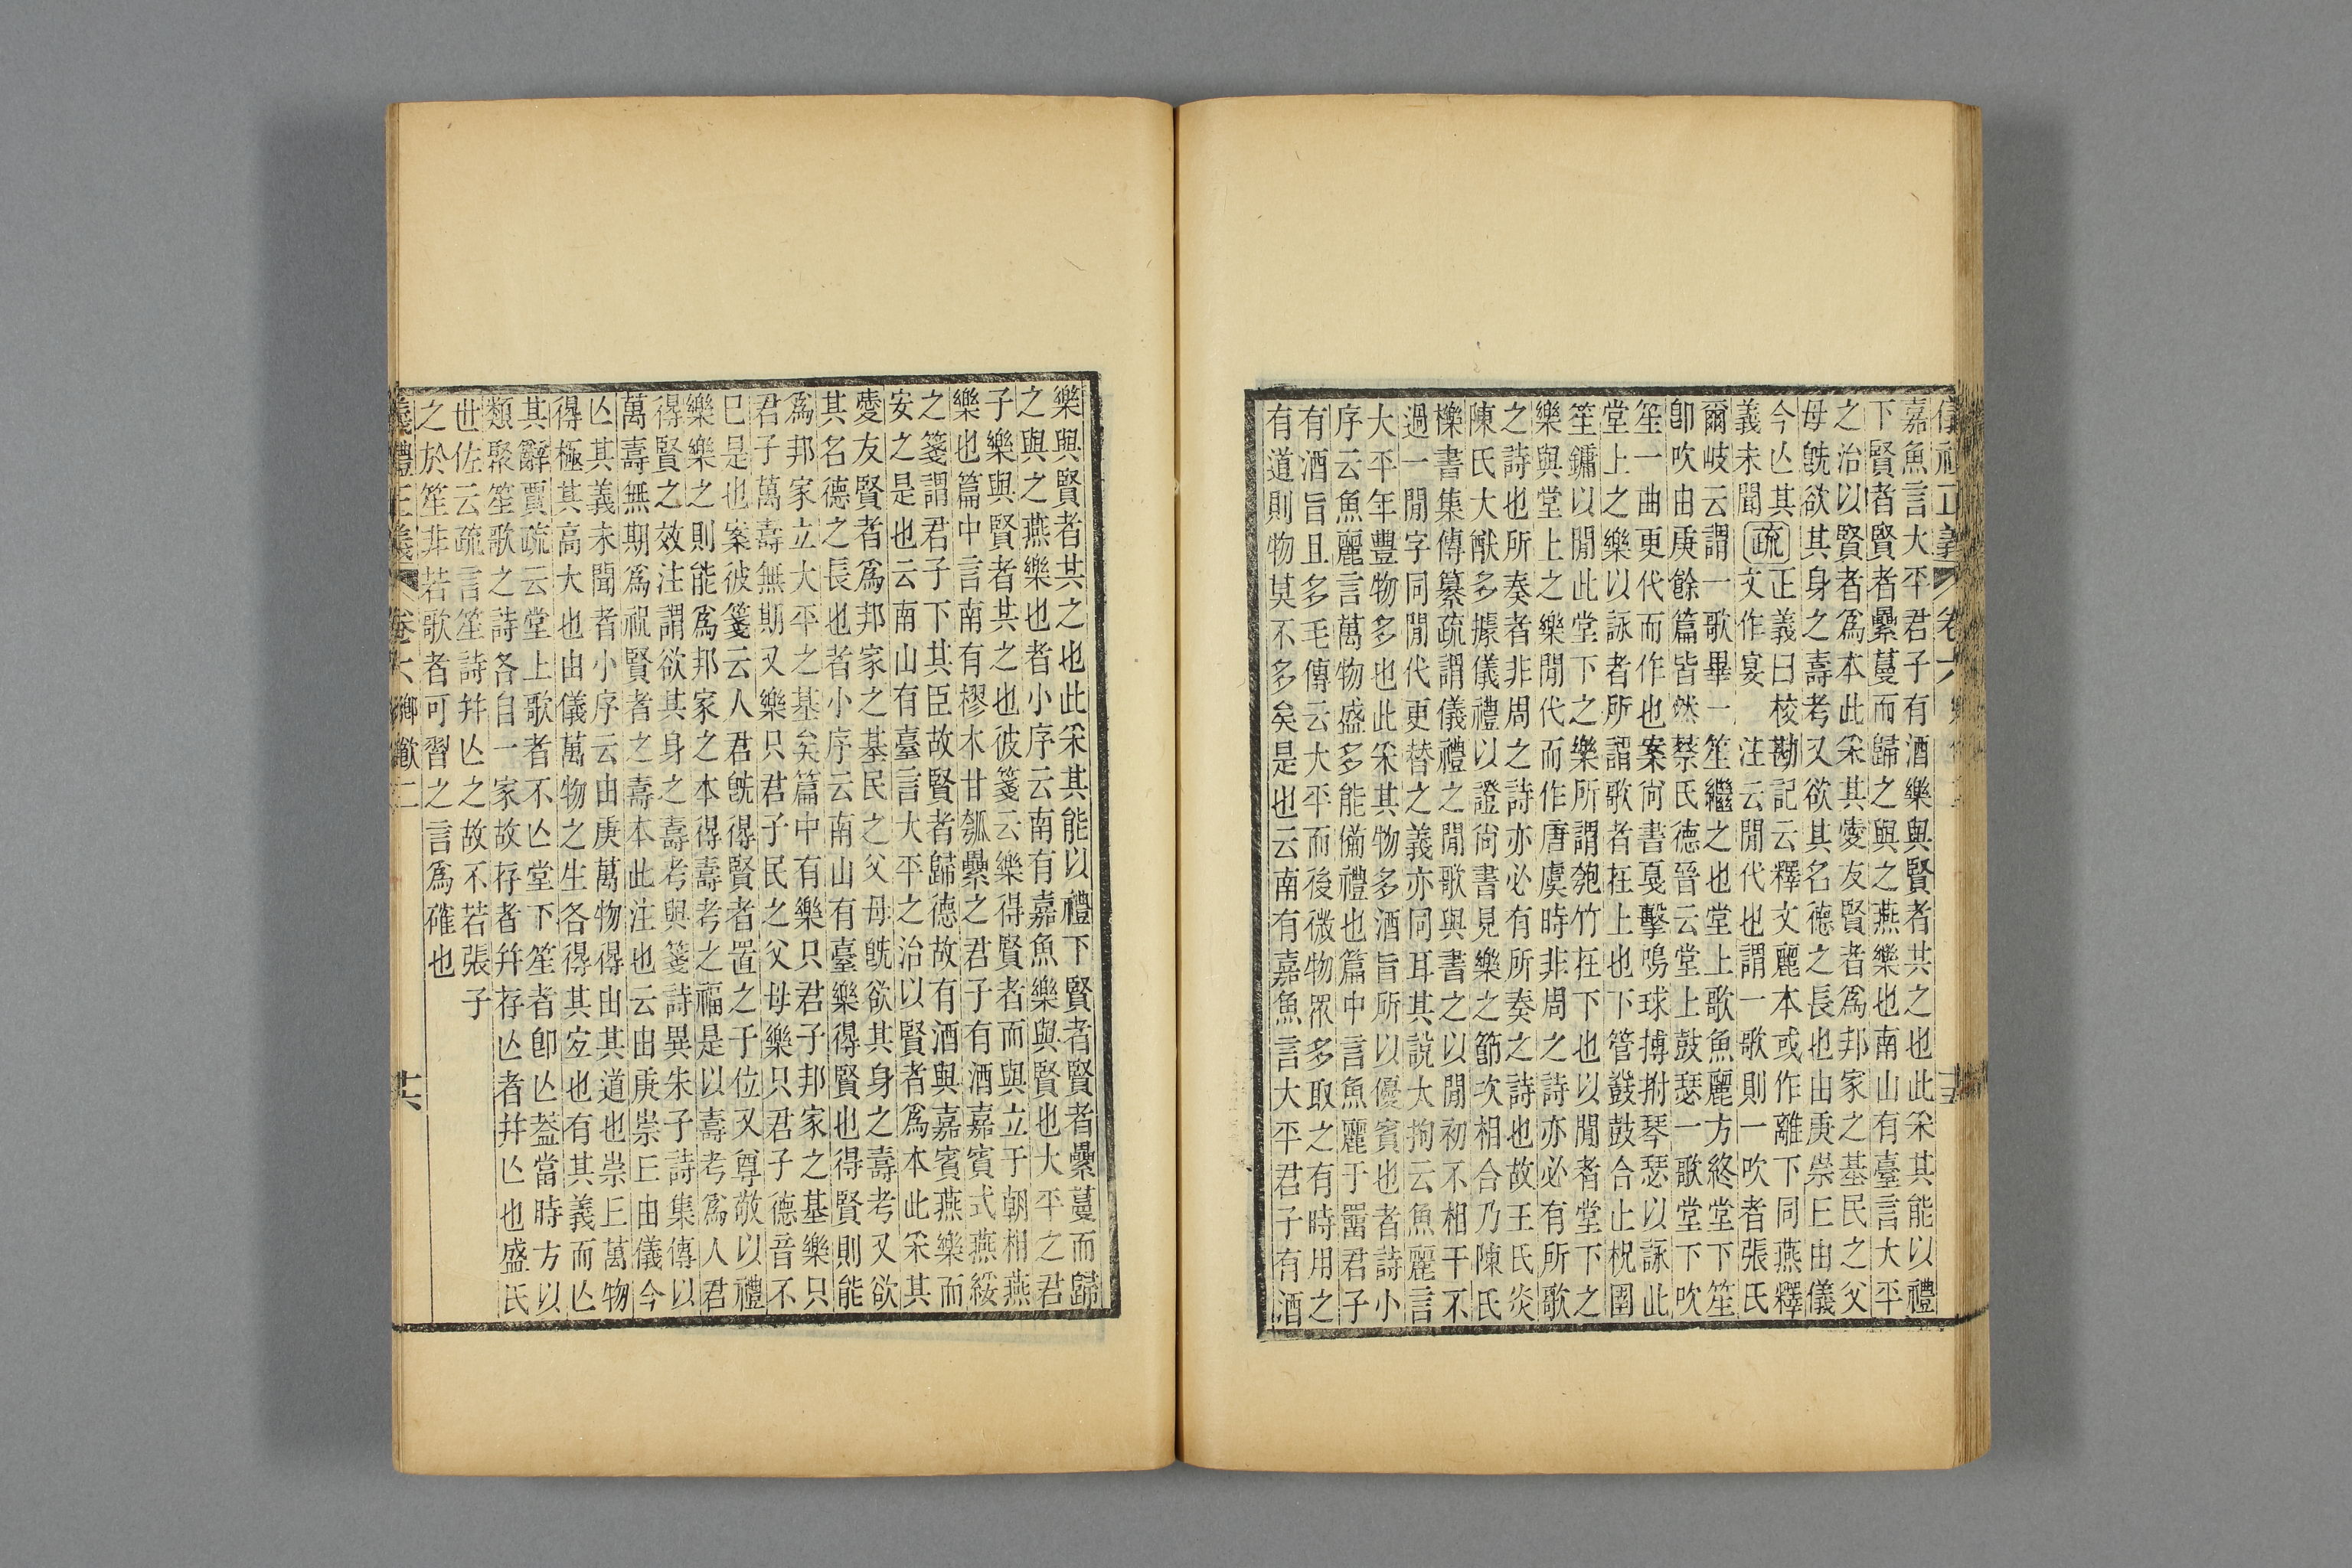 嘉魚言大平君子有酒樂與賢者共之也此采其能以禮
下賢者賢者纍蔓而歸之與之燕樂也南山有臺言大平
之治以賢者爲本此采其愛友賢者爲邦家之基民之父
母旣欲其身之壽考又欲其名德之長也由庚崇丘由儀
今亾其
義未聞疏正義曰校勘記云釋文麗本或作離下同燕釋
文作宴　注云閒代也謂一歌則一吹者張氏
爾岐云謂一歌畢一笙繼之也堂上歌魚麗方終堂下笙
卽吹由庚餘篇皆然蔡氏德晉云堂上鼓瑟一歌堂下吹
笙一曲更代而作也案尙書戛擊鳴球搏拊琴瑟以詠此
堂上之樂以詠者所謂歌者在上也下管鼗鼓合止柷圉
笙鏞以閒此堂下之樂所謂匏竹在下也以閒者堂下之
樂與堂上之樂閒代而作唐虞時非周之詩亦必有所歌
之詩也所奏者非周之詩亦必有所奏之詩也故王氏炎
陳氏大猷多據儀禮以證尙書見樂之節次相合乃陳氏
櫟書集傳纂疏謂儀禮之閒歌與書之以閒初不相干不
過一閒字同閒代更替之義亦同耳其說太拘云魚麗言
大平年豐物多也此采其物多酒旨所以優賓也者詩小
序云魚麗言萬物盛多能備禮也篇中言魚麗于罶君子
有酒旨且多毛傳云大平而後微物眾多取之有時用之
有道則物莫不多矣是也云南有嘉魚言大平君子有酒
樂與賢者共之也此采其能以禮下賢者賢者纍蔓而歸
之與之燕樂也者小序云南有嘉魚樂與賢也大平之君
子樂與賢者共之也彼箋云樂得賢者而與立于朝相燕
樂也篇中言南有樛木甘瓠纍之君子有酒嘉賓式燕綏
之箋謂君子下其臣故賢者歸德故有酒與嘉賓燕樂而
安之是也云南山有臺言大平之治以賢者爲本此采其
愛友賢者爲邦家之基民之父母旣欲其身之壽考又欲
其名德之長也者小序云南山有臺樂得賢也得賢則能
爲邦家立大平之基矣篇中有樂只君子邦家之基樂只
君子萬壽無期又樂只君子民之父母樂只君子德音不
已是也案彼箋云人君旣得賢者置之于位又尊敬以禮
樂樂之則能爲邦家之本得壽考之福是以壽考爲人君
得賢之效注謂欲其身之壽考與箋詩異朱子詩集傳以
萬壽無期爲祝賢者之壽本此注也云由庚崇丘由儀今
亾其義未聞者小序云由庚萬物得由其道也崇丘萬物
得極其高大也由儀萬物之生各得其宜也有其義而亾
其辭賈疏云堂上歌者不亾堂下笙者卽亾葢當時方以
類聚笙歌之詩各自一家故存者幷存亾者幷亾也盛氏
世佐云疏言笙詩幷亾之故不若張子
之於笙非若歌者可習之言爲確也
儀禮正義　卷六　鄉飮二　　廿六